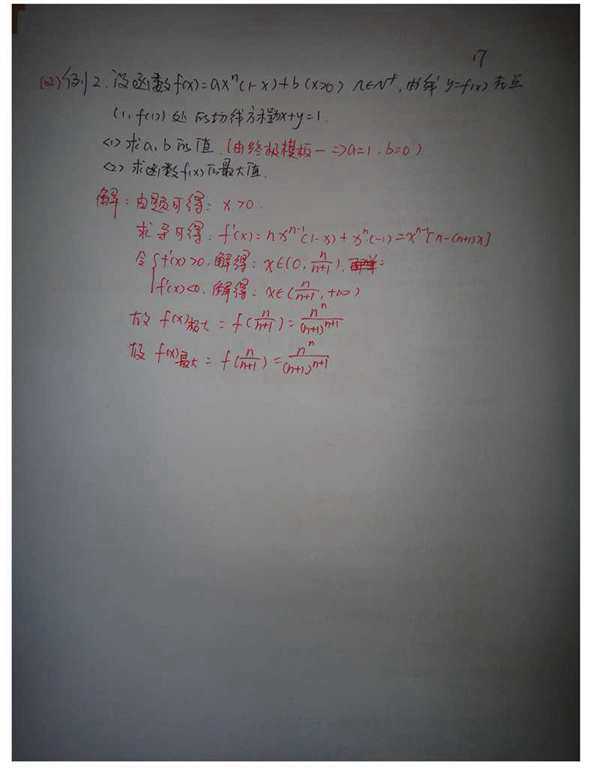 17
(02)例2.设函数f(x)=axⁿ(1-x)+b(x>0) n∈N⁺,曲线y=f(x)在点
(1,f(1))处的切线方程为x+y=1.
<1>求a,b的值.(由终极模板一⇒a=1.b=0)
<2>求函数f(x)的最大值.
解:由题可得:x>0.
求导可得:f'(x)=nxⁿ⁻¹(1-x)+xⁿ(-1)=xⁿ⁻¹[n-(n+1)x]
令{f'(x)>0.解得:x∈(0,n/(n+1)).
f'(x)<0.解得:x∈(n/(n+1),+∞)
故f(x)极大=f(n/(n+1))=nⁿ/(n+1)ⁿ⁺¹
故f(x)最大=f(n/(n+1))=nⁿ/(n+1)ⁿ⁺¹